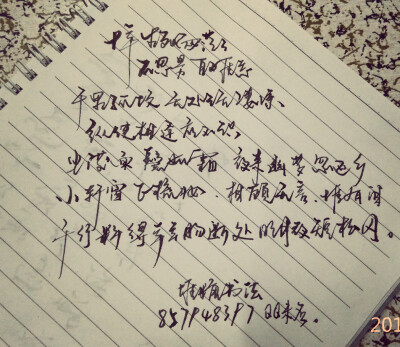 十年生死两茫茫
不思量 自难忘
千里孤坟 无处话凄凉、
纵使相逢应不识
尘满面 鬓如霜 夜来幽梦忽还乡
小轩窗 正梳妆. 相顾无言. 惟有泪
千行 料得年年肠断处 明月夜短松冈。
书法
857948397 QQ
201